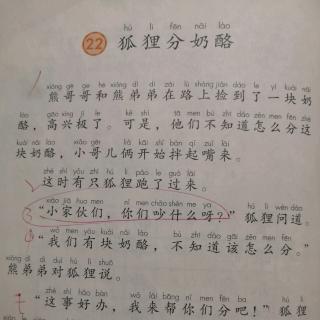 hú li fēn nǎi lào
22 狐狸分奶酪
xióng gē ge hé xióng dì di zài lù shàng jiǎn dào le yí kuài nǎi
熊哥哥和熊弟弟在路上捡到了一块奶
lào gāo xìng jí le kě shì tā men bù zhī dào zěn me fēn zhè
酪,高兴极了。可是,他们不知道怎么分这
kuài nǎi lào xiǎo gē r liǎ kāi shǐ bàn qǐ zuǐ lái
块奶酪,小哥儿俩开始拌起嘴来。
zhè shí yǒu zhī hú li pǎo le guò lái
这时有只狐狸跑了过来。
xiǎo jiā huo men nǐ men chǎo shén me ya hú li wèn dào
“小家伙们,你们吵什么呀?”狐狸问道。
wǒ men yǒu kuài nǎi lào bù zhī dào gāi zěn me fēn
“我们有块奶酪,不知道该怎么分。”
xióng dì di duì hú li shuō
熊弟弟对狐狸说。
zhè shì hǎo bàn wǒ lái bāng nǐ men fēn ba
“这事好办,我来帮你们分吧!”狐狸